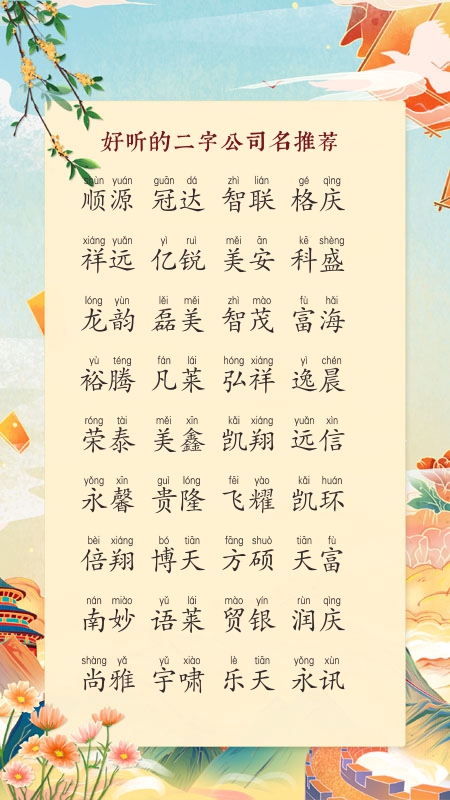 好听的二字公司名推荐
shùn yuán guān dá zhì lián gé qìng
顺源 冠达 智联 格庆
xiáng yuǎn yì ruì měi ān kē shèng
祥远 亿锐 美安 科盛
lóng yùn lěi měi zhì mào fù hǎi
龙韵 磊美 智茂 富海
yù téng fán lái hóng xiáng yì chén
裕腾 凡莱 弘祥 逸晨
róng tài měi xīn kǎi xiáng yuǎn xìn
荣泰 美鑫 凯翔 远信
yǒng xīn guì lóng fēi yào kǎi huán
永馨 贵隆 飞耀 凯环
bèi xiáng bó tiān fāng shuò tiān fù
倍翔 博天 方硕 天富
nán miào yǔ lái mào yín rùn qìng
南妙 语莱 贸银 润庆
shàng yǎ yǔ xiào lè tiān yǒng xùn
尚雅 宇啸 乐天 永讯